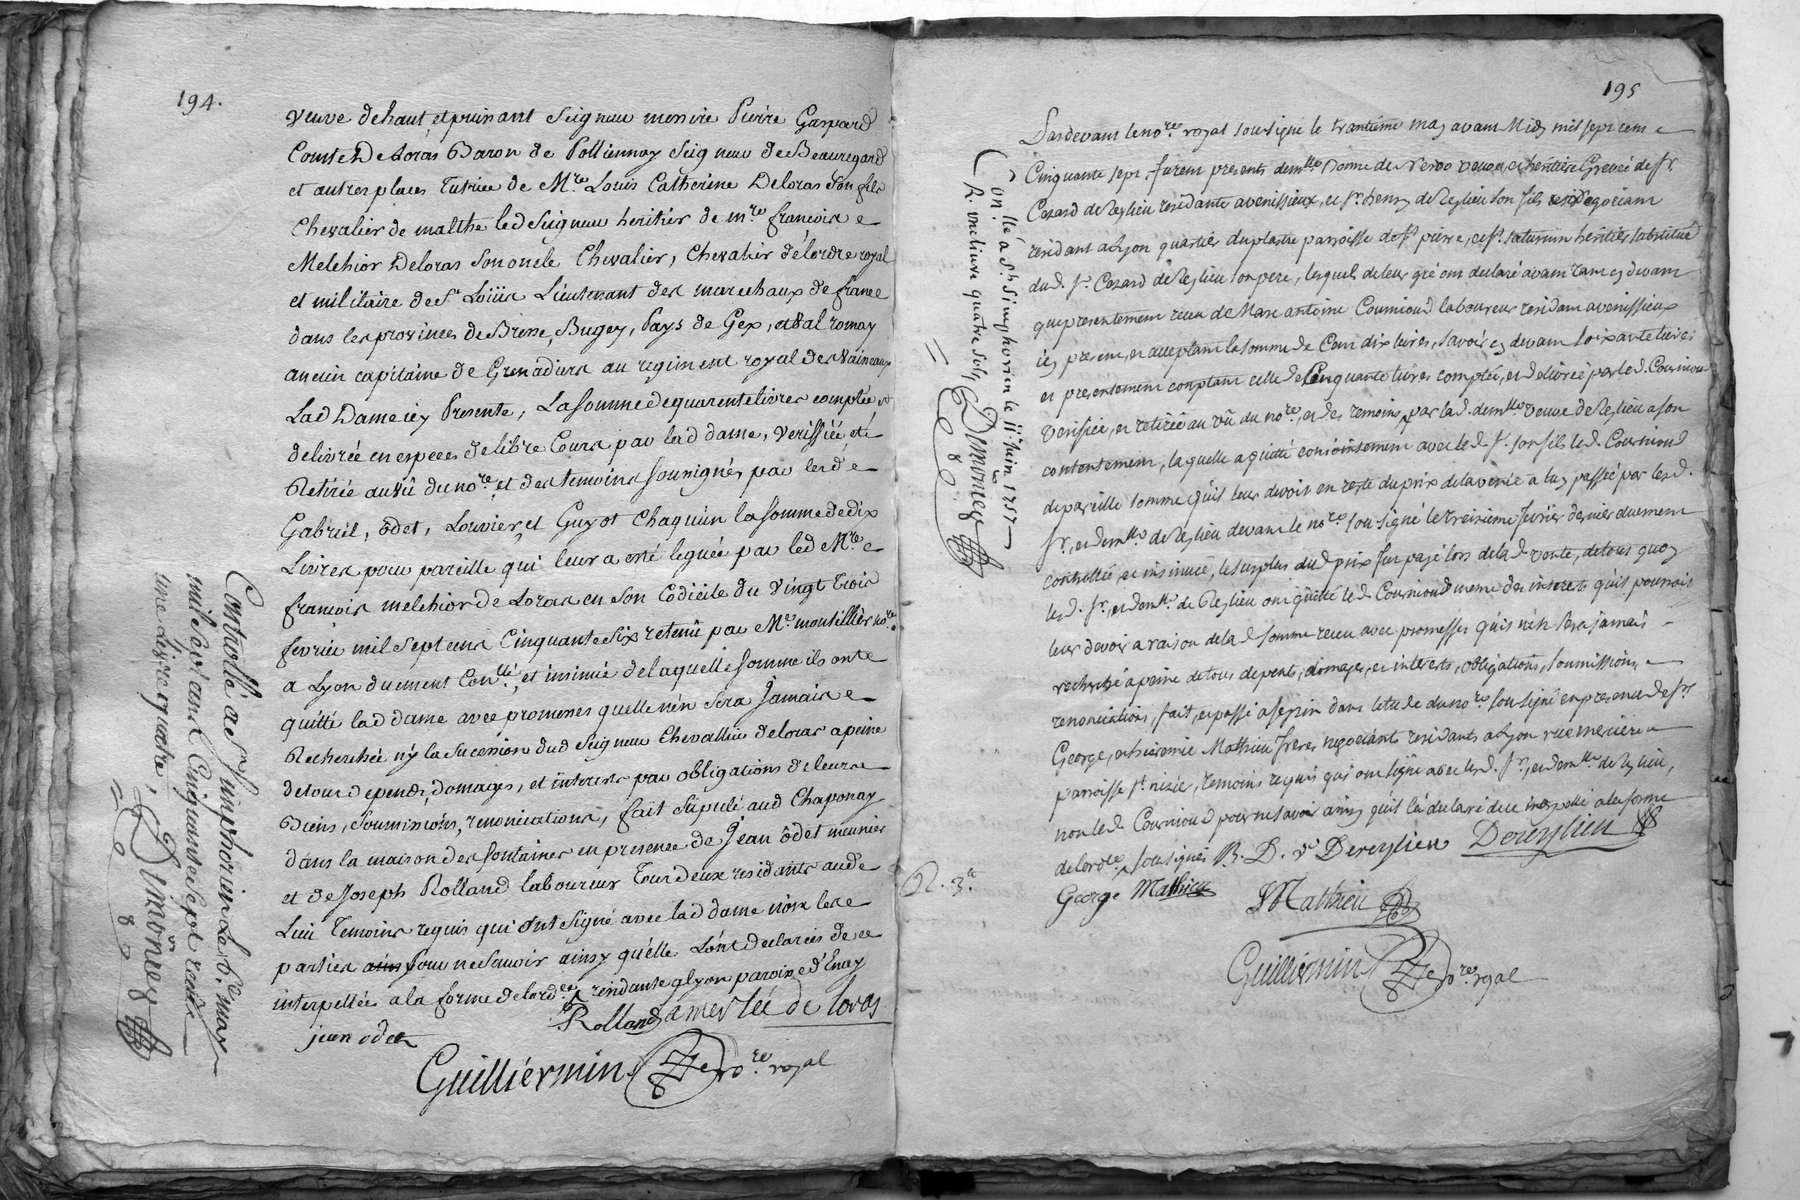 194.
veuve de haut et puissant Seigneur messire Pierre Gaspard
Comte De Loras Baron de Pollionnay Seigneur de Beauregard
et autres places Tutrice de Mre Louis Catherine Deloras son fils
Chevalier de malthe led Seigneur heritier de mre francois
Melchior Deloras son oncle Chevalier, Chevalier de l'ordre royal
et militaire de St Loüis Lieutenant des marechaux de france
dans les provinces de Bresse, Bugey, Pays de Gex, et Valromay
ancien capitaine de Grenadiers au regiment royal des Vaisseaux
Lad Dame icy Presente, La somme de quarente livres comptée et
delivrée en especes de libre Cours par lad dame, verifsiée et
Retirée au vû du nore et des temoins soussignés par lesd
Gabriel, ôdet, Louvier et Guyot chaquun la somme de dix
Livres pour pareille qui leur a esté leguée par led Mre
francois melchior de Loras en son Codicile du vingt trois
fevrier mil sept cens Cinquante six retenû par Me moutillier nore
a Lyon duement Conllé, et insinué de laquelle somme ils ont
quitté lad dame avec promesses quelle n'en sera jamais
Recherchée n'y la sucession dud Seigneur Chevallier deloras a peine
de tous depends, domages, et interets par obligations de leurs
Biens, soumissions, renonciations, fait stipulé aud Chaponay
dans la maison des fontaines en presence de Jean ôdet meunier
et de Joseph Rolland laboureur Tous deux residants aud
Lieu Temoins requis qui ont signé avec lad dame non les
parties pour ne sçavoir ainsy qu'elle L'ont declarées de ce
interpellées a la forme de lord.ce residante a lyon paroisse d'Enay
Rolland amerlée de loras
jean odet
Guilliérmin nore royal
Controllé a St Simphorien Le 6e may
mil Sept cens Cinquante Sept reçu
une Livre quatre,
Simônet
195
Pardevant le nore royal soussigné le trantieme may avant Midy mil sept cent
Cinquante sept, furent presents demlle Bonne de veuve et heritiere Grevée de sr
Cezard de Reylieu residante a venissieux, et sr henry de Reylieu son fils negociant
residant a Lyon quartier du platre parroisse de st pierre, et st saturnin heritier substitué
dud. sr Cezard de Reylieu son pere, lesquels de leur gré ont declaré avoir tant cy devant
que presentement receu de Marc antoine Cournioud laboureur residant a venissieux
icy present, et acceptant la somme de Cent dix livres, savoir cy devant soixante livres
et presentement comptant celle de Cinquante livres comptée, et delivrée par led. Cournioud
verifiée, et retirée au vû du nore, et des temoins par lad. demlle veuve de Reylieu a son
contentement, laquelle a quitté conjointement avec led. sr son fils led. Courniond
de pareille somme qu'il leur devoit en reste du prix de la vente a luy passée par lesd.
sr, et demlle de Reylieu devant le nore soussigné le treisieme fevrier dernier duement
controllée, et insinuée, le surplus dud prix fut payé lors de lad. vente, de tout quoy
lesd. sr, et demlle de Reylieu ont quitté led. Courniond meme des interets qu'il pourroit
leur devoir a raison de lad somme receu avec promesses qu'il n'en sera jamais
recherché a peine de tous depents, domages, et interets, obligations, soumissions,
renonciations, fait, et passé a serpin dans letude du nore soussigné en presence de srs
George, et hieromie Mathieu freres negociants residants a Lyon rue merciere
parroisse st nizier, temoins requis qui ont signé avec lesd. sr, et demlle de Reylieu,
non led. Courniond pour ne savoir ainsy qu'il l'a declaré de ce interpellé a la forme
de lordce, soussignés B. D. ve Dereylieu Dereylieu
George Mathieu JMathieu
Guilliermin nore royal
R. 3te
Conllé a St Simphorien le 11 Juin 1757
R. une livre quatre sols
Simonet